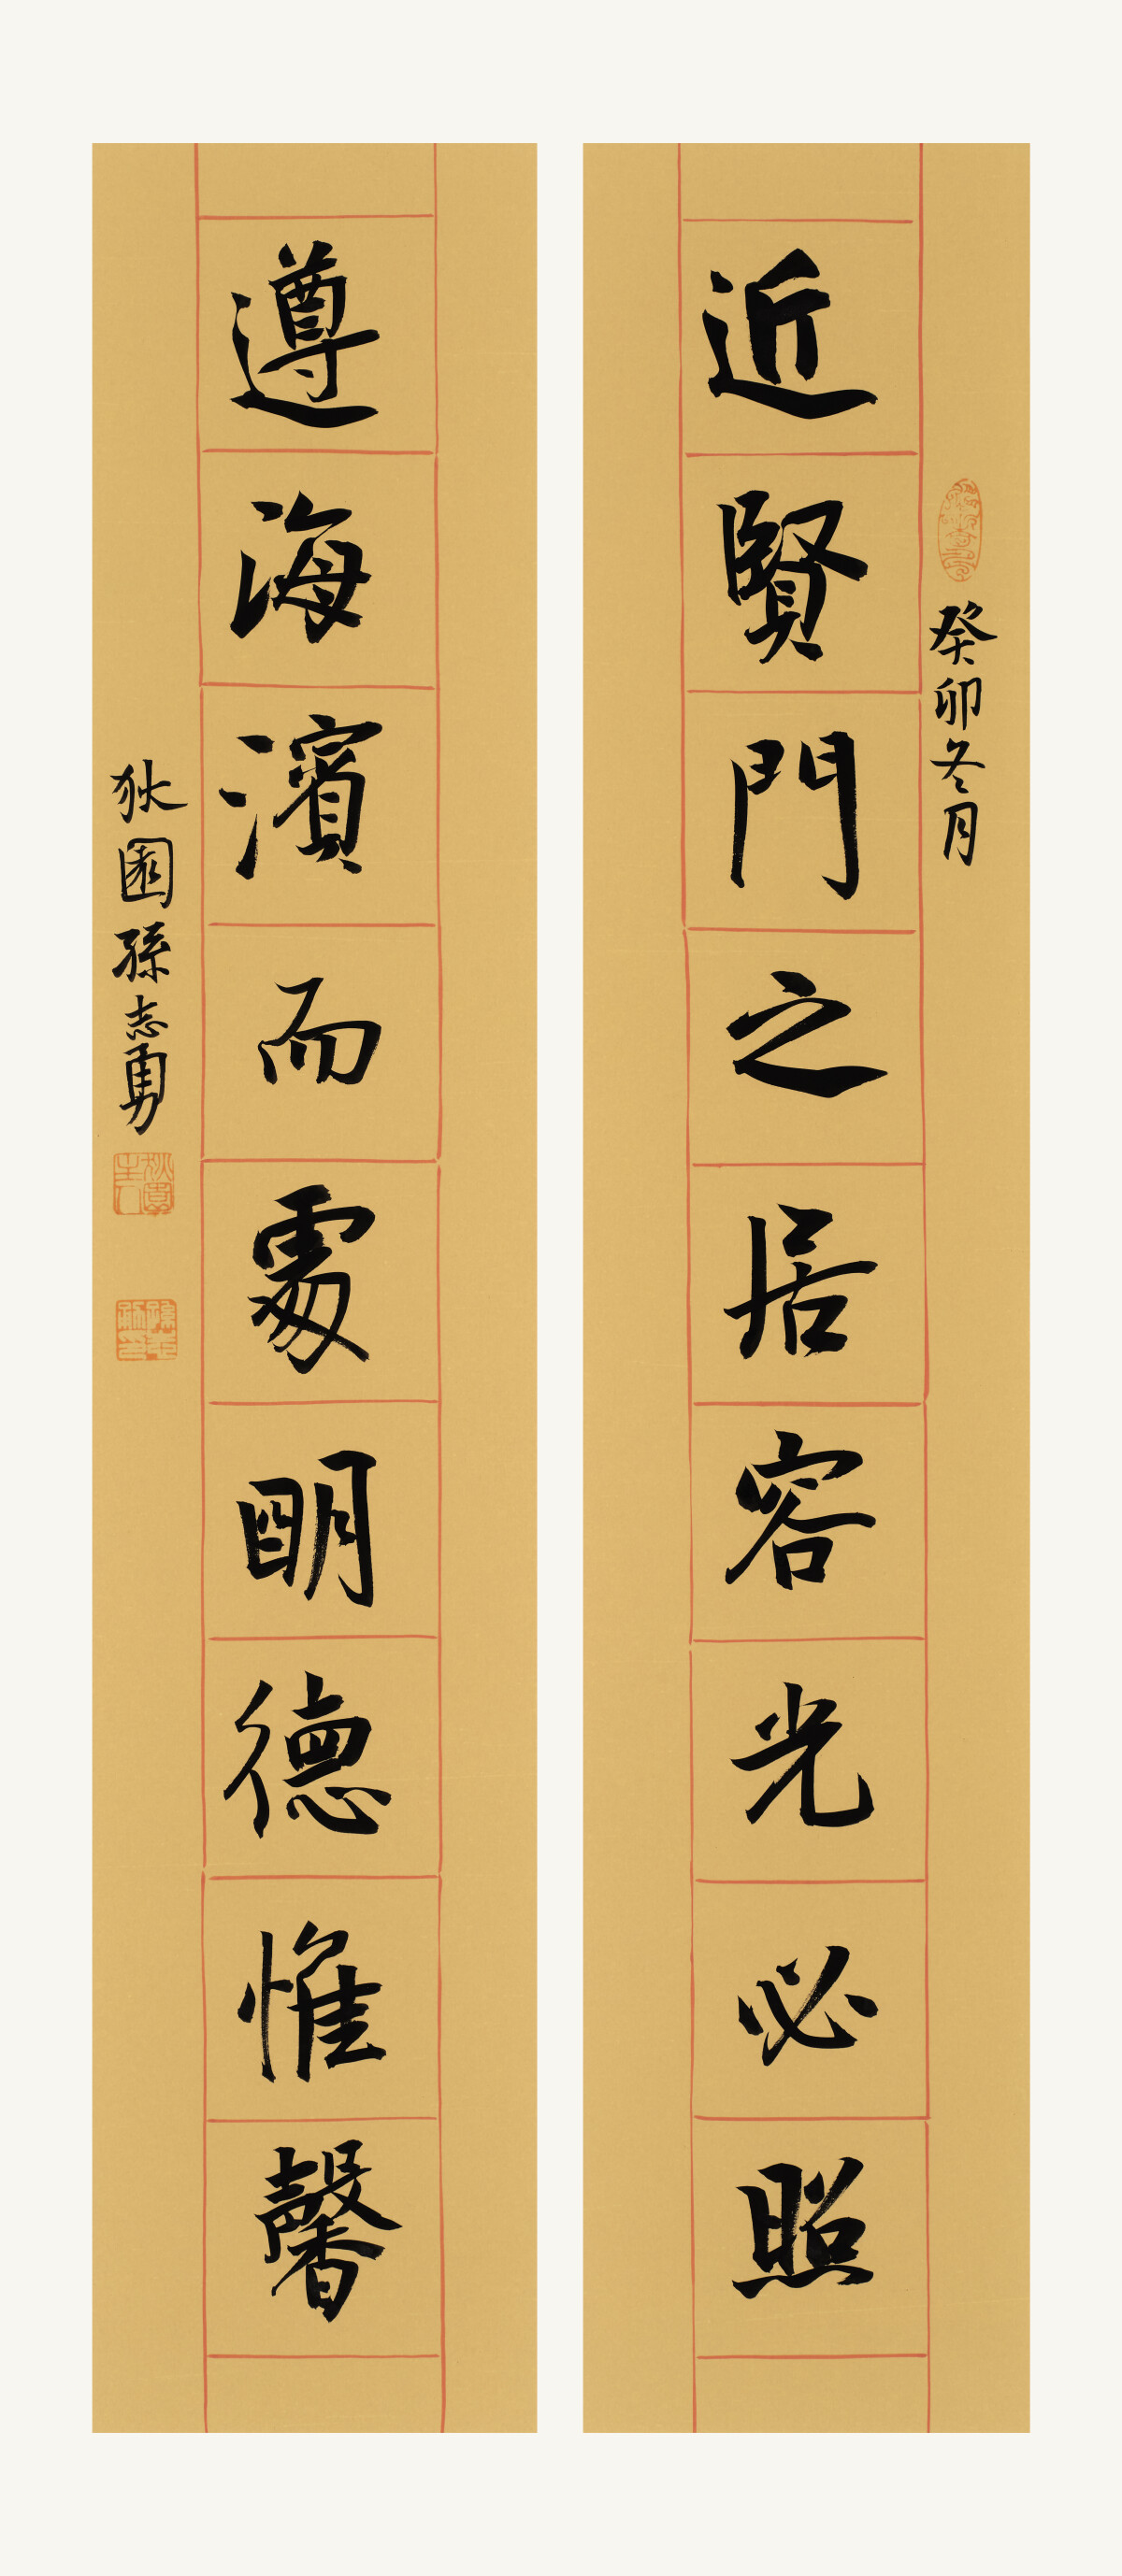 癸卯冬月
近賢門之居容光必照
遵海濱而處明德惟馨
狄園孫志勇